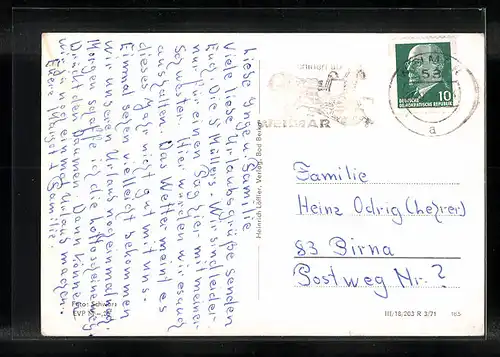 Liebe Inge u. Familie
Viele liebe Urlaubsgrüße senden
Euch Die 3 Müllers. Wir sind leider
nur für einen Tag hier mit meiner
Schwester. Hier würden wir es auch
aushalten. Das Wetter meint es
dieses Jahr nicht gut mit uns.
Einmal sehen vielleicht bekommen
wir unseren Urlaub noch einmal und
Morgen schaffe ich die Lottoscheine weg
Drückt den Daumen. Dann können
wir noch einmal Urlaub machen.
Eure Margot & Familie.
Foto: Schwarz
EVP M
Heinrich Löffler, Verlag, Bad Berka
WEIMAR
10
DEUTSCHE
DEMOKRATISCHE REPUBLIK
a
Familie
Heinz Odrig (Lehrer)
83 Pirna
Postweg Nr. ?
III/18/203 R 3/71